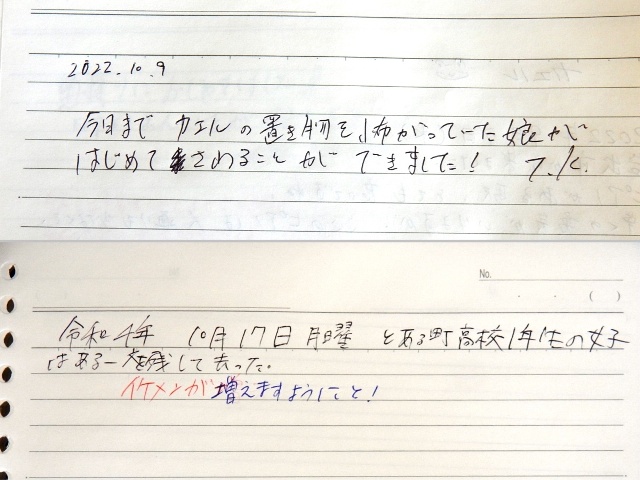 2022.10.9
今日まで カエルの置き物を怖がっていた娘が
はじめて さわることができました! T.K.
No.
( )
令和4年 10月17日 月曜 とある町高校1年生の女子
はある一文を残して去った。
イケメンが増えますようにと!